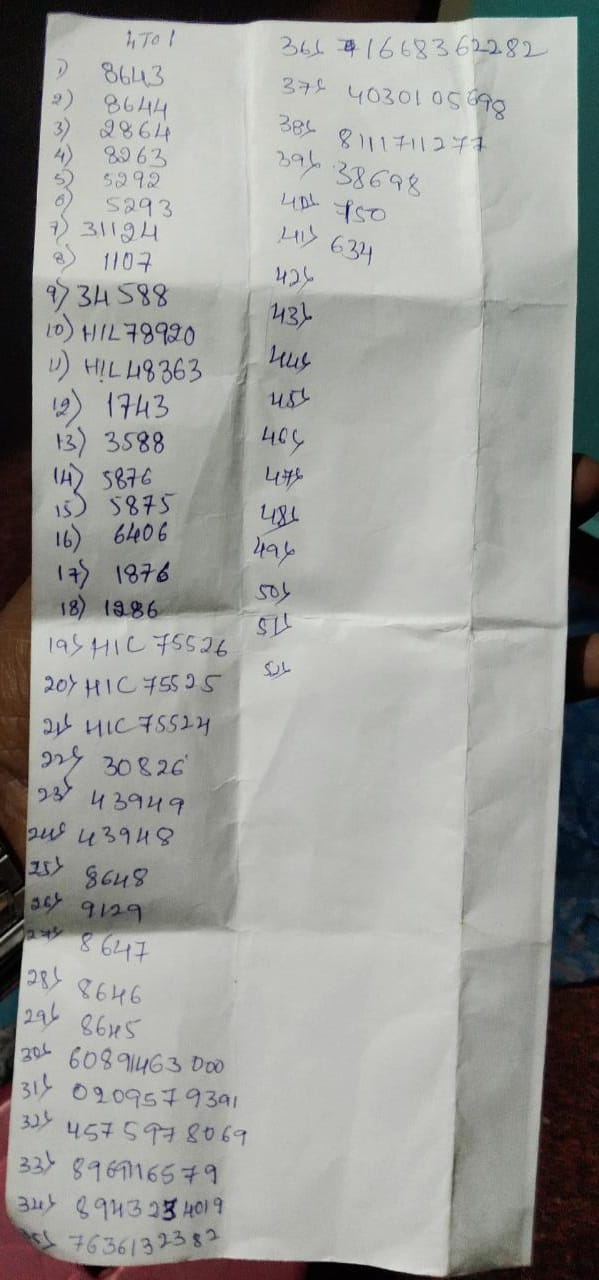 4 TO 1
1) 8643
2) 8644
3) 2864
4) 8263
5) 5292
6) 5293
7) 31124
8) 1107
9) 34588
10) HIL78920
11) HIL48363
12) 1743
13) 3588
14) 5876
15) 5875
16) 6406
17) 1876
18) 1286
19) HIC 75526
20) HIC 75525
21) HIC 75524
22) 30826
23) 43949
24) 43948
25) 8648
26) 9129
27) 8647
28) 8646
29) 8645
30)
31) 0209579391
32) 4575978069
33)
34)
35) 7636132382
36) 1668362282
37) 4030105698
38) 8111711277
39) 38698
40) 750
41) 634
42)
43)
44)
45)
46)
47)
48)
49)
50)
51)
52)